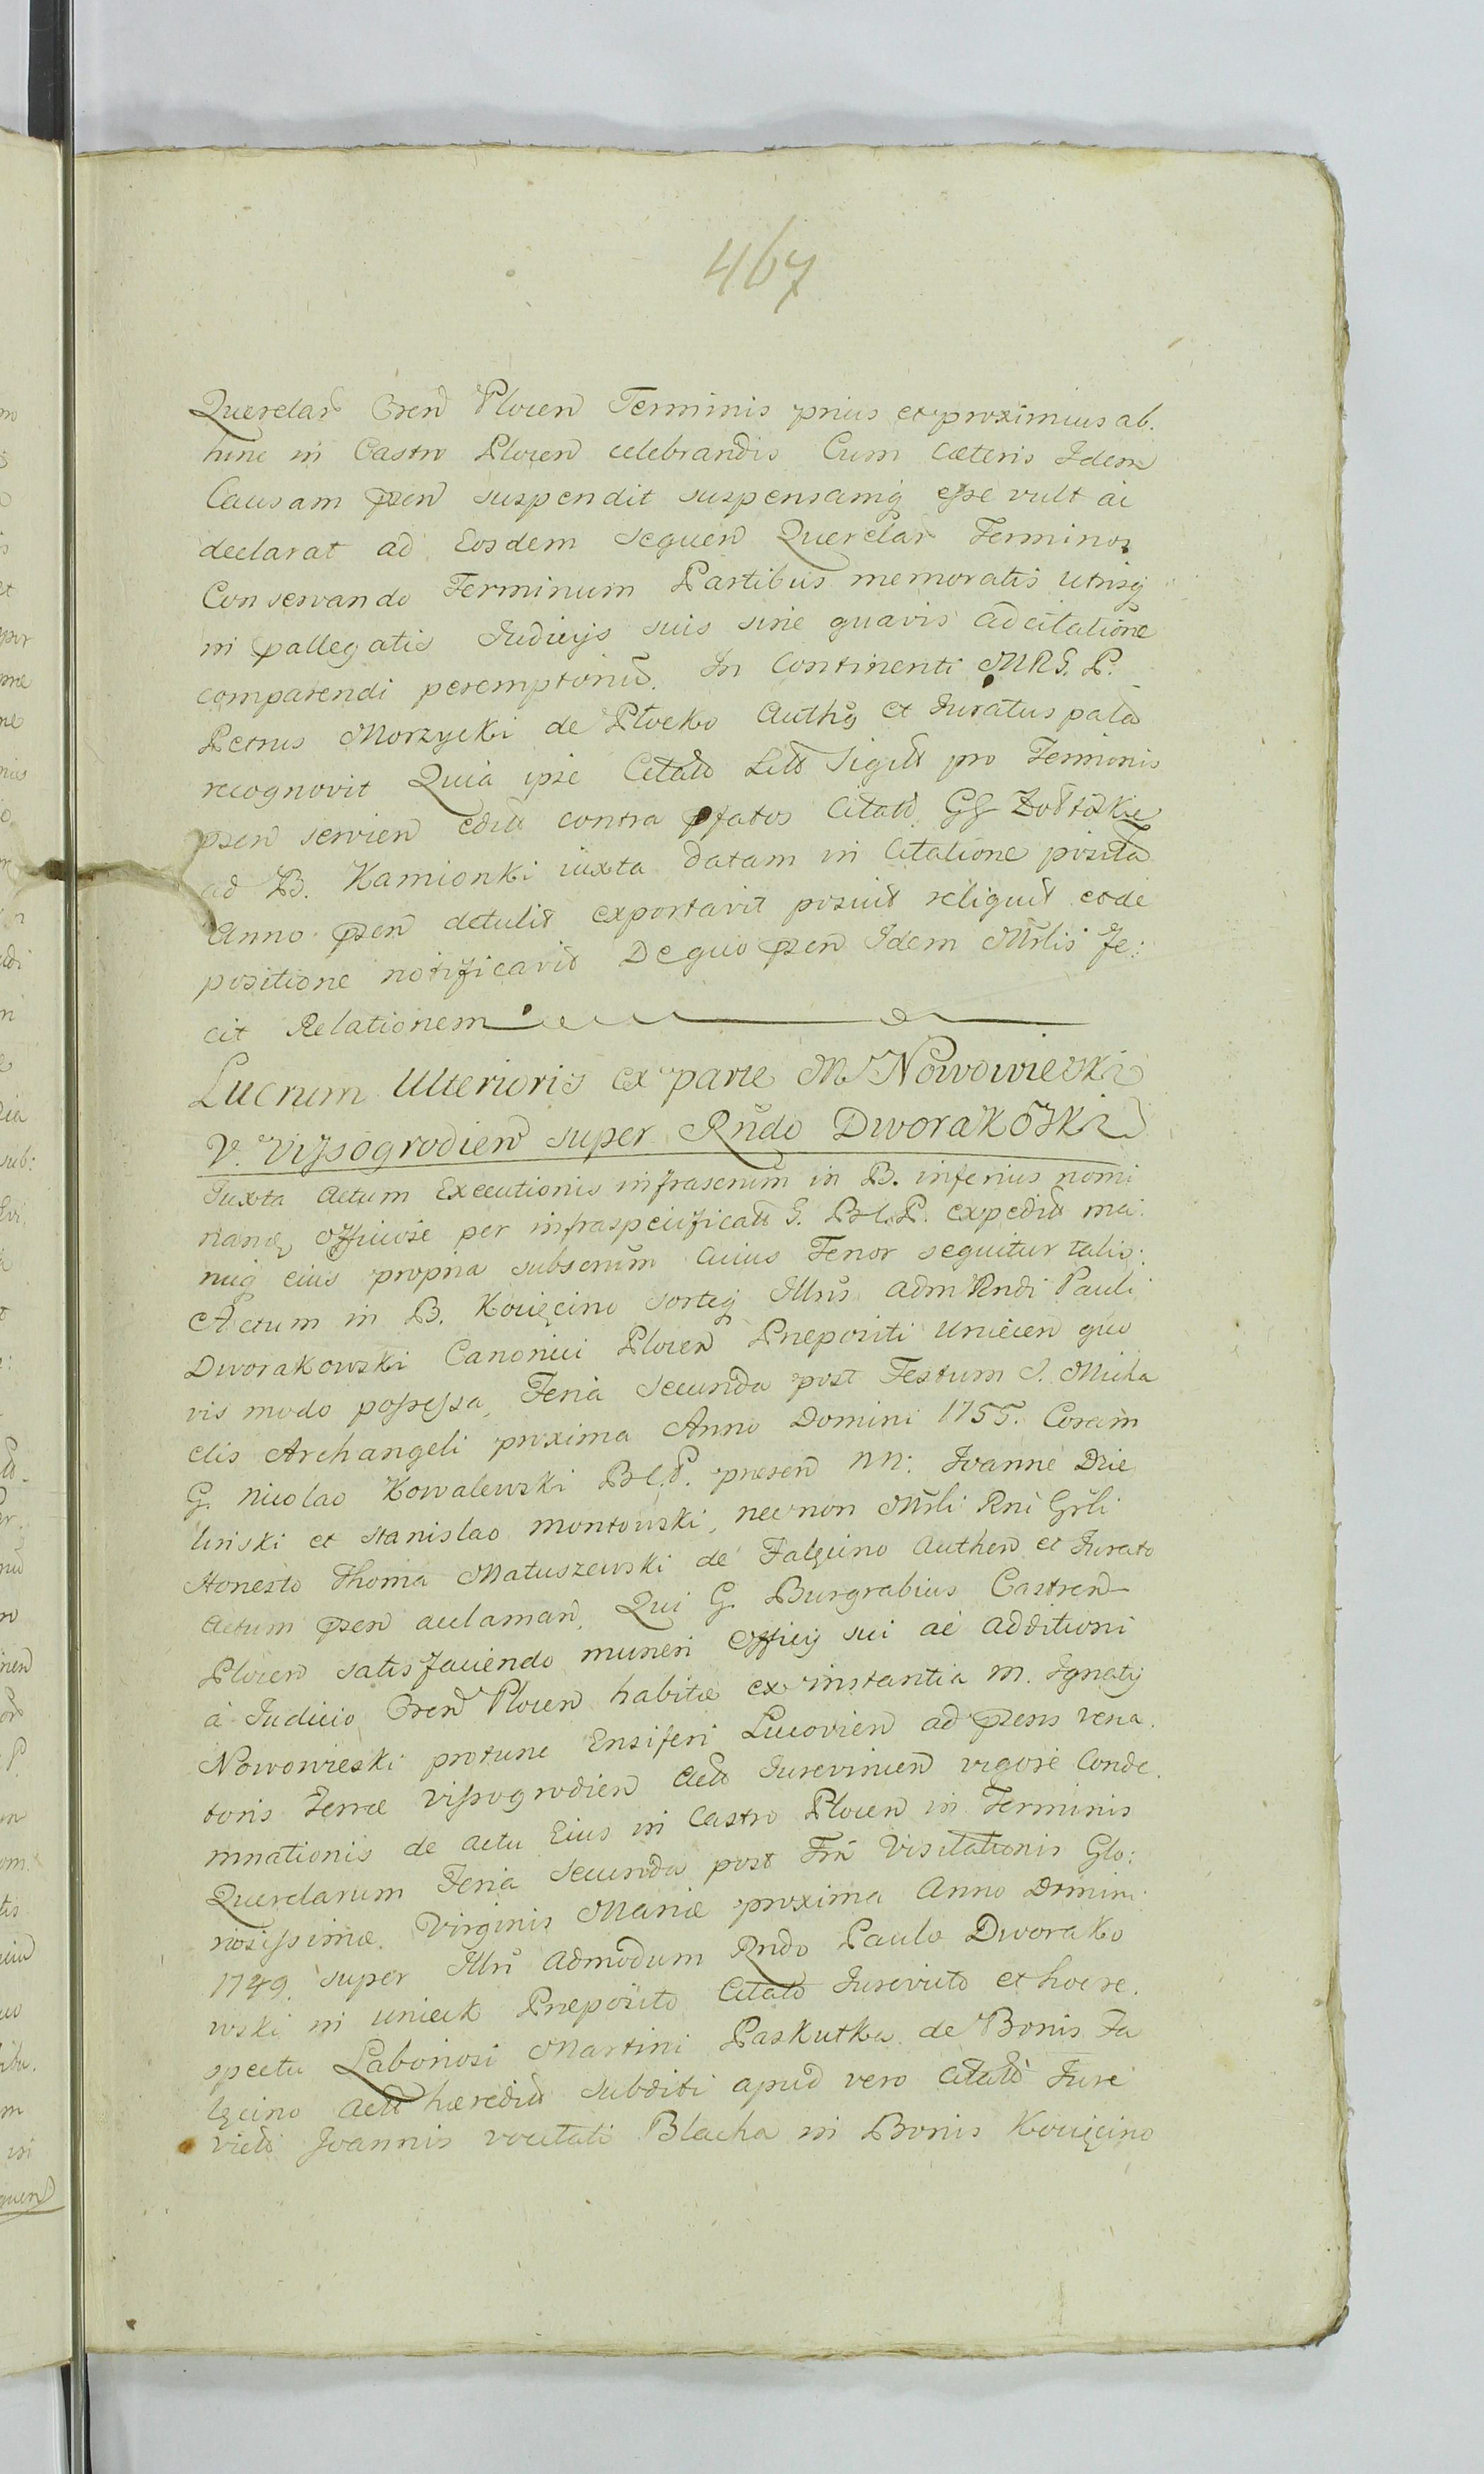 467
Querelar Cren Plocen Terminis prius et proximius ab.
hinc in Castro Plocen celebrandis Cum Cæteris Idem
Causam pzen suspendit suspensamq esse vult ac
declarat ad Eosdem sequen Querelar Terminos
Conservando Terminum Partibus memoratis utrisq
in pallegatis Iudicijs suis sine quavis adcitatione
comparendi peremptoriu. In Continenti MRG. P.
Petrus Morzycki de Płocko Auth et Iuratus palã
recognovit Quia ipse Citato Litt Sigilt pro Terminis
pzen servien edit contra pfatos Citatt GG Zołtzkie
ad B. Kamionki iuxta datam in Citatione posità
Anno pzen detulit exportavit posuit reliquit et de
positione notificavit De quo pzen Idem Mrlis fe:
cit Relationem
Lucrum Ulterioris ex parte M Nowowieski
V. Vissogrodien super Rndo Dworakoski
Iuxta Actum Executionis infrascrium in B. inferius nomi
nanq officiose per infraspecificatt G. B.C.P. expedit ma:
nuq eius propria subscrum Cuius Tenor sequitur talis:
Actum in B. Kocięcino sorteq Illris admRndi Pauli
Dworakowski Canonici Plocen Præpositi Uniecen quo
vis modo possessa, Feria Secunda post Festum S. Micha
elis Archangeli proxima Anno Domini 1755. Coram
G. Nicolao Kowalewski B.C.P. presen NN: Ioanne Dzie
liński et Stanislao Montowski, necnon Mrli Rni Grli
Honesto Thoma Matuszewski de Falęcino Authen et Iurato
Actum pzen acclaman, Qui G. Burgrabius Castren
Plocen satisfaciendo muneri Officij sui ac additioni
à Iudicio Cren Plocen habitæ ex instantia M. Ignatij
Nowowieski protunc Ensiferi Lucovien ad pzens vena.
toris Terræ Vissogrodien Actt Iurevincen vigore Conde.
mnationis de actu Eius in Castro Plocen in Terminis
Querelarum Feria Secunda post Fm Visitationis Glo:
riosissimæ Virginis Mariæ proxima Anno Domini
1749. super Illri Admodum Rndo Paulo Dworako
wski in Unieck Præposito Citato Iurevicto et hoc re.
spectu Laboriosi Martini Paskutka de Bonis Fa
lęcino Actt hæredit subditi apud vero Citatt Iure
victt Ioannis vocitati Blacha in Bonis Kocięcino